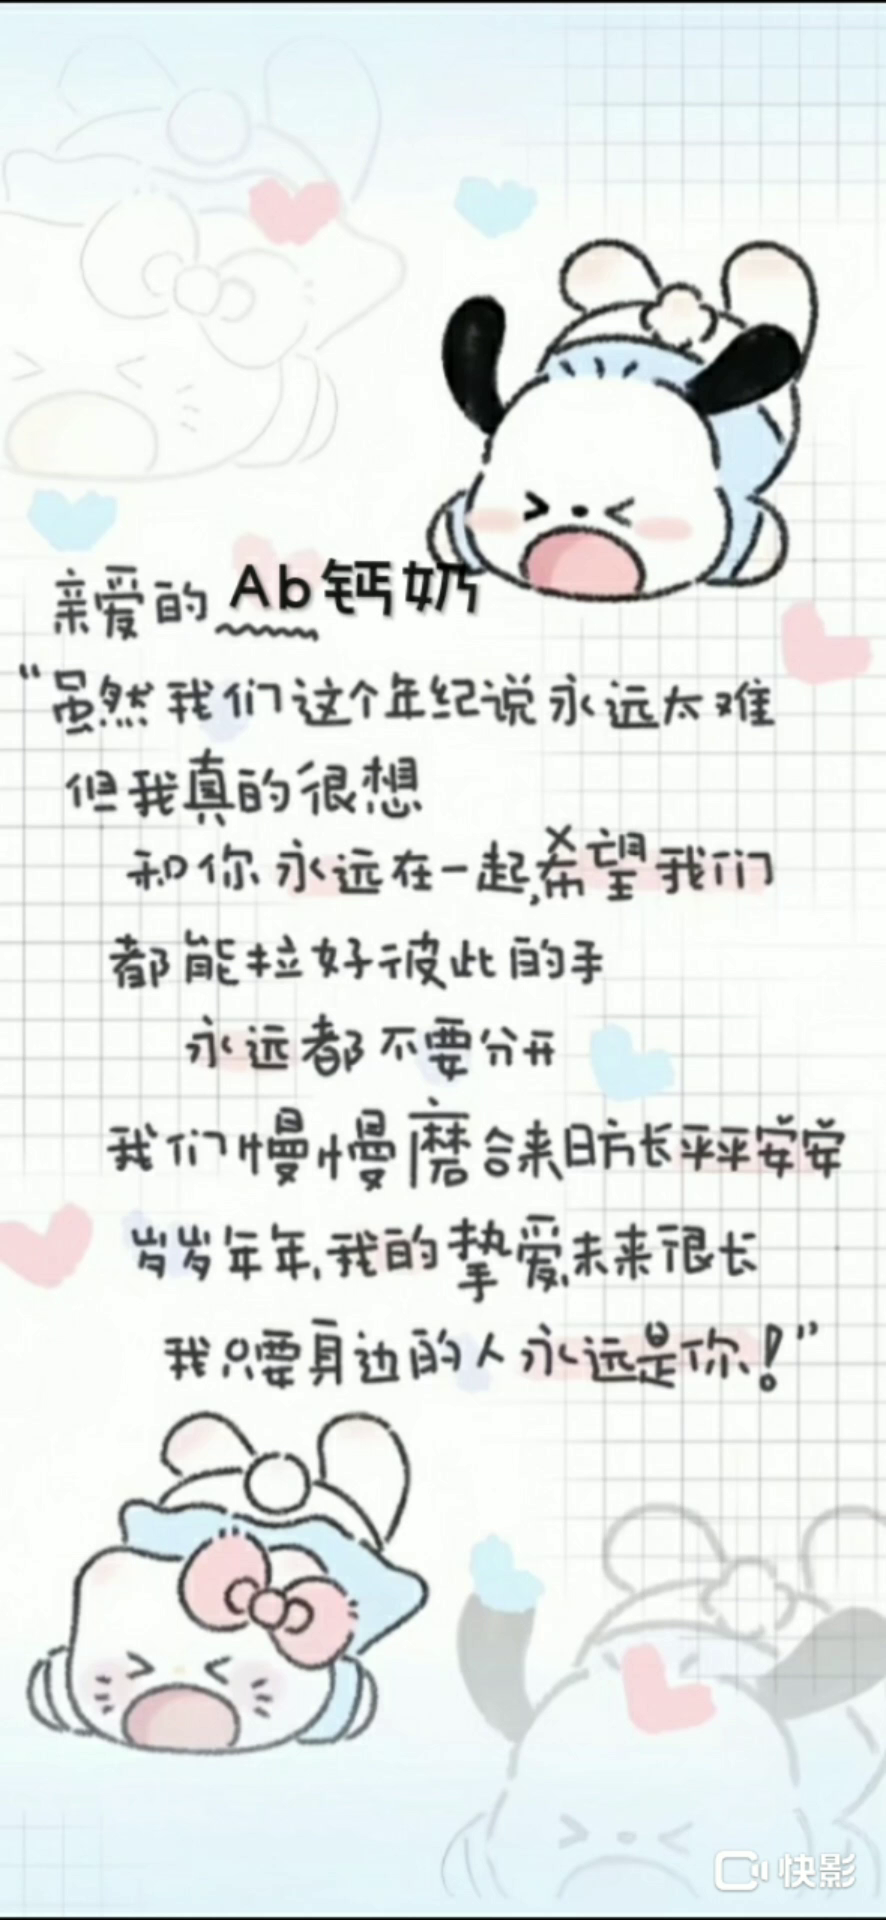 亲爱的 Ab钙奶
“虽然我们这个年纪说永远太难
但我真的很想
和你永远在一起,希望我们
都能拉好彼此的手
永远都不要分开
我们慢慢磨合来日方长平平安安
岁岁年年,我的挚爱,未来很长
我只要身边的人永远是你!”
快影